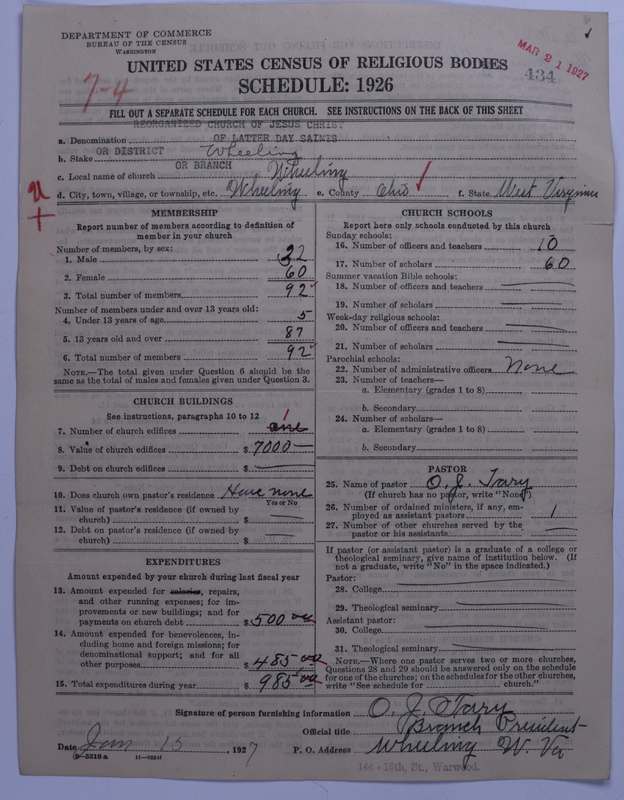 DEPARTMENT OF COMMERCE
BUREAU OF THE CENSUS
WASHINGTON
MAR 21 1927
434
UNITED STATES CENSUS OF RELIGIOUS BODIES
SCHEDULE: 1926
7-4
FILL OUT A SEPARATE SCHEDULE FOR EACH CHURCH. SEE INSTRUCTIONS ON THE BACK OF THIS SHEET
REORGANIZED CHURCH OF JESUS CHRIST
a. Denomination OF LATTER DAY SAINTS
OR DISTRICT
b. Stake Wheeling
OR BRANCH
c. Local name of church Wheeling
d. City, town, village, or township, etc. Wheeling e. County Ohio f. State West Virginia
MEMBERSHIP
Report number of members according to definition of
member in your church
Number of members, by sex:
1. Male 32
2. Female 60
3. Total number of members 92
Number of members under and over 13 years old:
4. Under 13 years of age 5
5. 13 years old and over 87
6. Total number of members 92
NOTE.—The total given under Question 6 should be the
same as the total of males and females given under Question 3.
CHURCH BUILDINGS
See instructions, paragraphs 10 to 12
7. Number of church edifices one 1
8. Value of church edifices $ 7000—
9. Debt on church edifices $
10. Does church own pastor's residence Have none
Yes or No
11. Value of pastor's residence (if owned by
church) $
12. Debt on pastor's residence (if owned by
church) $
EXPENDITURES
Amount expended by your church during last fiscal year
13. Amount expended for salaries, repairs,
and other running expenses; for im-
provements or new buildings; and for
payments on church debt $ 500 00
14. Amount expended for benevolences, in-
cluding home and foreign missions; for
denominational support; and for all
other purposes $ 485 00
15. Total expenditures during year $ 985 00
CHURCH SCHOOLS
Report here only schools conducted by this church
Sunday schools:
16. Number of officers and teachers 10
17. Number of scholars 60
Summer vacation Bible schools:
18. Number of officers and teachers
19. Number of scholars
Week-day religious schools:
20. Number of officers and teachers
21. Number of scholars
Parochial schools:
22. Number of administrative officers None
23. Number of teachers—
a. Elementary (grades 1 to 8)
b. Secondary
24. Number of scholars—
a. Elementary (grades 1 to 8)
b. Secondary
PASTOR
25. Name of pastor O. J. Tary
(If church has no pastor, write "None")
26. Number of ordained ministers, if any, em-
ployed as assistant pastors 1
27. Number of other churches served by the
pastor or his assistants
If pastor (or assistant pastor) is a graduate of a college or
theological seminary, give name of institution below. (If
not a graduate, write "No" in the space indicated.)
Pastor:
28. College
29. Theological seminary
Assistant pastor:
30. College
31. Theological seminary
NOTE.—Where one pastor serves two or more churches,
Questions 28 and 29 should be answered only on the schedule
for one of the churches; on the schedules for the other churches,
write "See schedule for church."
Signature of person furnishing information O. J. Tary
Official title Branch President
Date Jan 15, 1927 P. O. Address Wheeling W. Va
8-5518a 11-9864f
144 - 16th, St., Warwood.